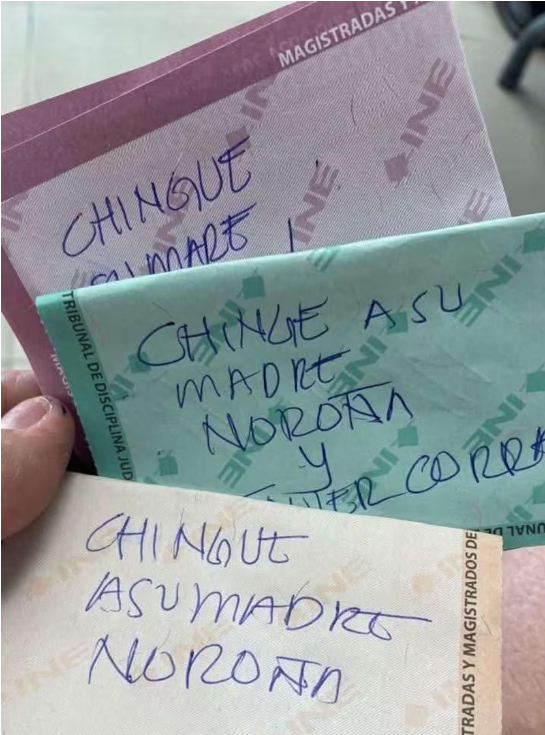 MAGISTRADAS Y
INE
CHINGUE
SU MARE
TRIBUNAL DE DISCIPLINA JUD
CHINGE ASU
MADRE
NOROÑA
Y
CORRA
CHINGUE
ASUMADRE
NOROÑA
TRADAS Y MAGISTRADOS DE